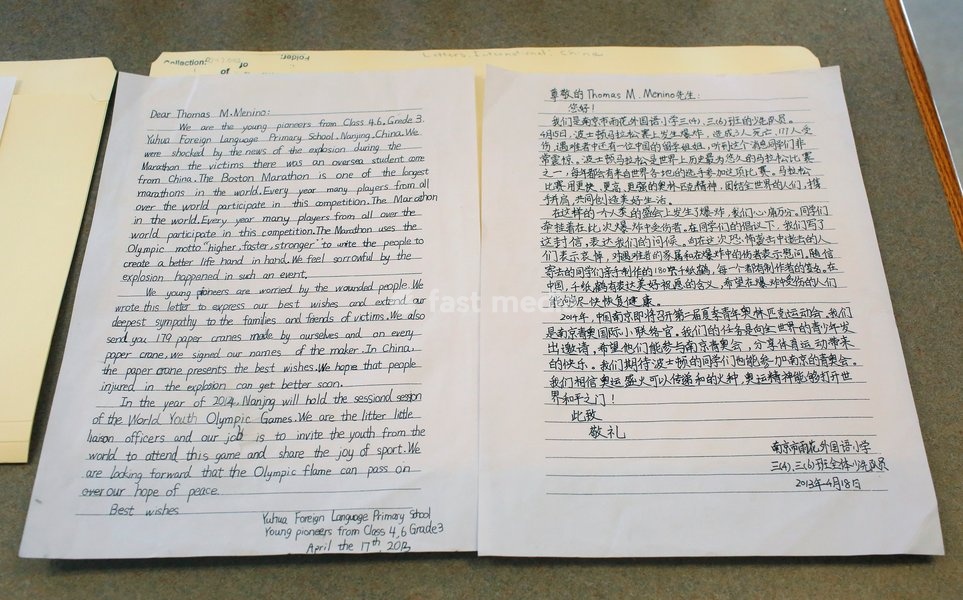 Collection:
Folder:
of
Letters, International: China
Dear Thomas M.Menino:
We are the young pioneers from Class 4.6, Grade 3.
Yuhua Foreign Language Primary School, Nanjing, China. We
were shocked by the news of the explosion during the
Marathon the victims there was an oversea student came
from China. The Boston Marathon is one of the longest
marathons in the world. Every year many players from all
over the world participate in this competition. The Marathon
in the world. Every year many players from all over the
world participate in this competition. The Marathon uses the
Olympic motto "higher, faster, stronger" to unite the people to
create a better life hand in hand. We feel sorrowful by the
explosion happened in such an event.
We young pioneers are worried by the wounded people. We
wrote this letter to express our best wishes and extend our
deepest sympathy to the families and friends of victims. We also
send you 179 paper cranes made by ourselves and on every
paper crane, we signed our names of the maker. In China,
the paper crane presents the best wishes. We hope that people
injured in the explosion can get better soon.
In the year of 2014, Nanjing will hold the session
of the World Youth Olympic Games. We are the litter little
liaison officers and our job is to invite the youth from the
world to attend this game and share the joy of sport. We
are looking forward that the Olympic flame can pass on
over our hope of peace.
Best wishes
Yuhua Foreign Language Primary School
Young pioneers from Class 4,6 Grade3
April the 17th, 2013
尊敬的Thomas M. Menino先生:
您好!
我们是南京市雨花外国语小学三(4)、三(6)班的少先队员。
4月15日,波士顿马拉松赛上发生爆炸,造成3人死亡,177人受
伤,遇难者中还有一位中国的留学姐姐,听到这个消息同学们非
常震惊。波士顿马拉松是世界上历史最为悠久的马拉松比赛
之一,每年都会有来自世界各地的选手参加这项比赛。马拉松
比赛用更快、更高、更强的奥林匹克精神,团结全世界的人们,携
手并肩,共同创造美好生活。
在这样的一个人类的盛会上发生了爆炸,我们心痛万分。同学们
牵挂着在此次爆炸中受伤者。在同学们的倡议下,我们写了
这封信,表达我们的问候。向在这次恐怖袭击中逝去的人
们表示哀悼,对遇难者的家属和在爆炸中的伤者表示慰问。随信
寄去的同学们亲手制作的180只千纸鹤,每一个都有制作者的签名。在
中国,千纸鹤有表达美好祝愿的含义,希望在爆炸中受伤的人们
能够尽快恢复健康。
2014年,中国南京即将召开第二届夏季青年奥林匹克运动会,我们
是南京青奥国际小联络官,我们的任务是向全世界的青少年发
出邀请,希望他们能参与南京青奥会,分享体育运动带来
的快乐。我们期待波士顿的同学们也能参加南京的青奥会。
我们相信奥运圣火可以传递和平的火种,奥运精神能够打开世
界和平之门!
此致
敬礼
南京市雨花外国语小学
三(4)、三(6)班全体少先队员
2013年4月18日
fast med